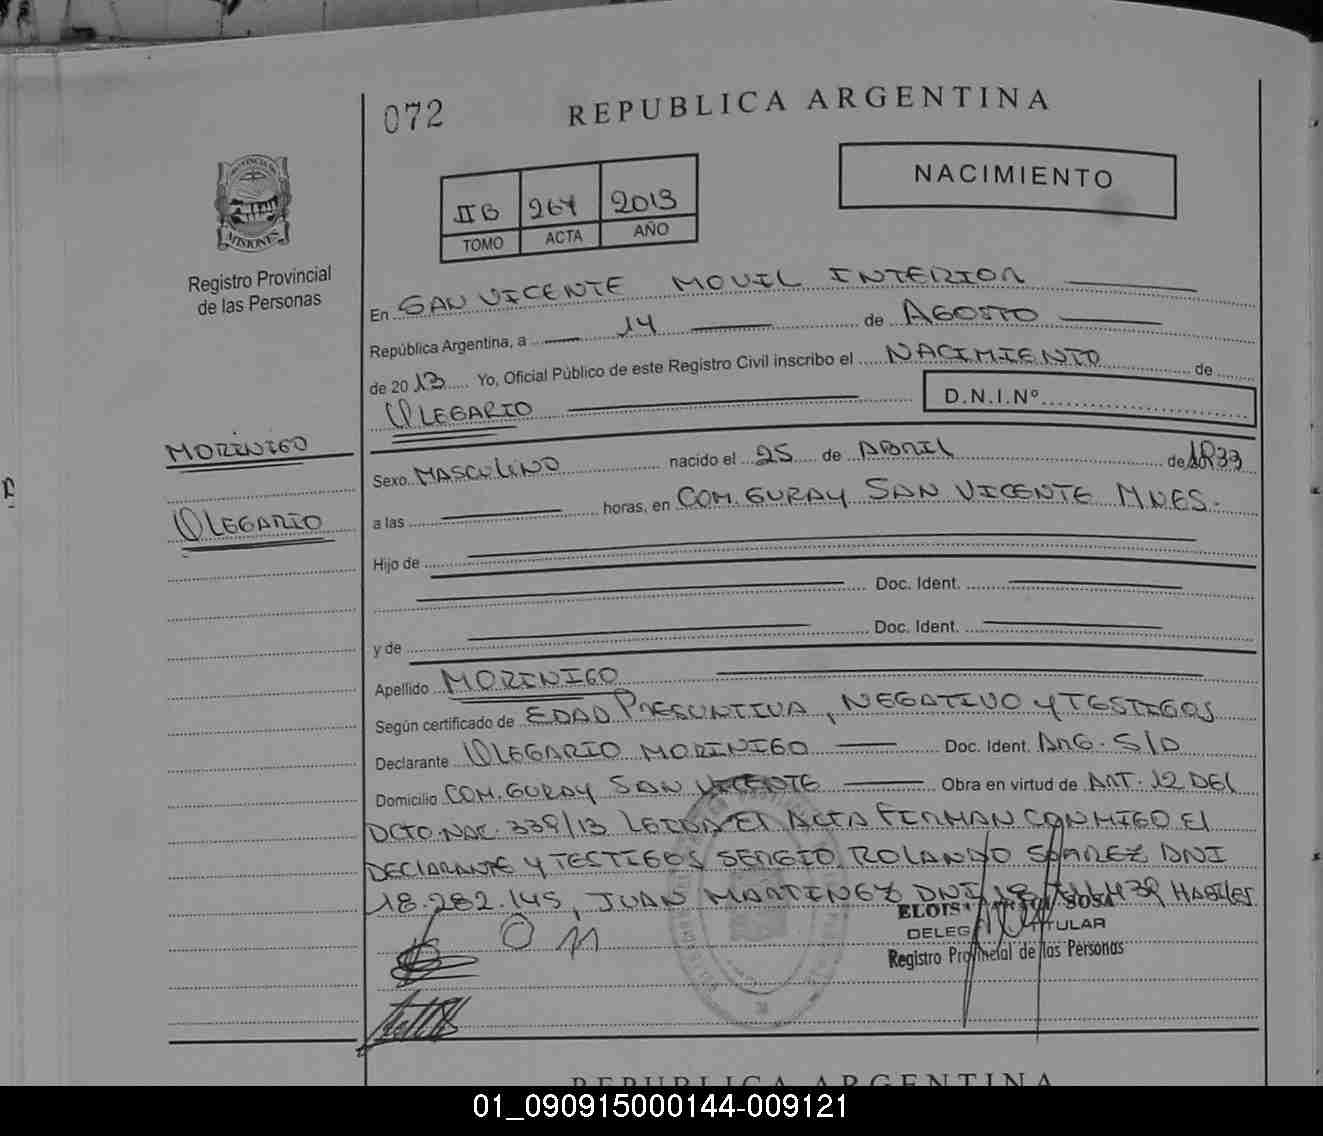 072
REPUBLICA ARGENTINA
NACIMIENTO
IIB 264 2013
TOMO ACTA AÑO
PROVINCIA DE
MISIONES
Registro Provincial
de las Personas
En SAN VICENTE MOVIL INTERIOR
República Argentina, a 14 de AGOSTO
de 2013 Yo, Oficial Público de este Registro Civil inscribo el NACIMIENTO de
OLEGARIO
D.N.I.Nº
MORINIGO
OLEGARIO
Sexo MASCULINO nacido el 25 de ABRIL de 1933
a las horas, en COM. GURAY SAN VICENTE MNES.
Hijo de
Doc. Ident.
y de Doc. Ident.
Apellido MORINIGO
Según certificado de EDAD PRESUNTIVA, NEGATIVO Y TESTIGOS
Declarante OLEGARIO MORINIGO Doc. Ident. ARG. S/D
Domicilio COM. GURAY SAN VICENTE Obra en virtud de ART. 12 DEL
DCTO. NAC. 339/13 LEIDA EL ACTA FIRMAN CONMIGO El
DECLARANTE Y TESTIGOS SERGIO ROLANDO SUAREZ DNI
18.282.145, JUAN MARTINEZ DNI HABILES
O M
SOSA
TITULAR
Registro Provincial de las Personas
REPUBLICA ARGENTINA
01_090915000144-009121